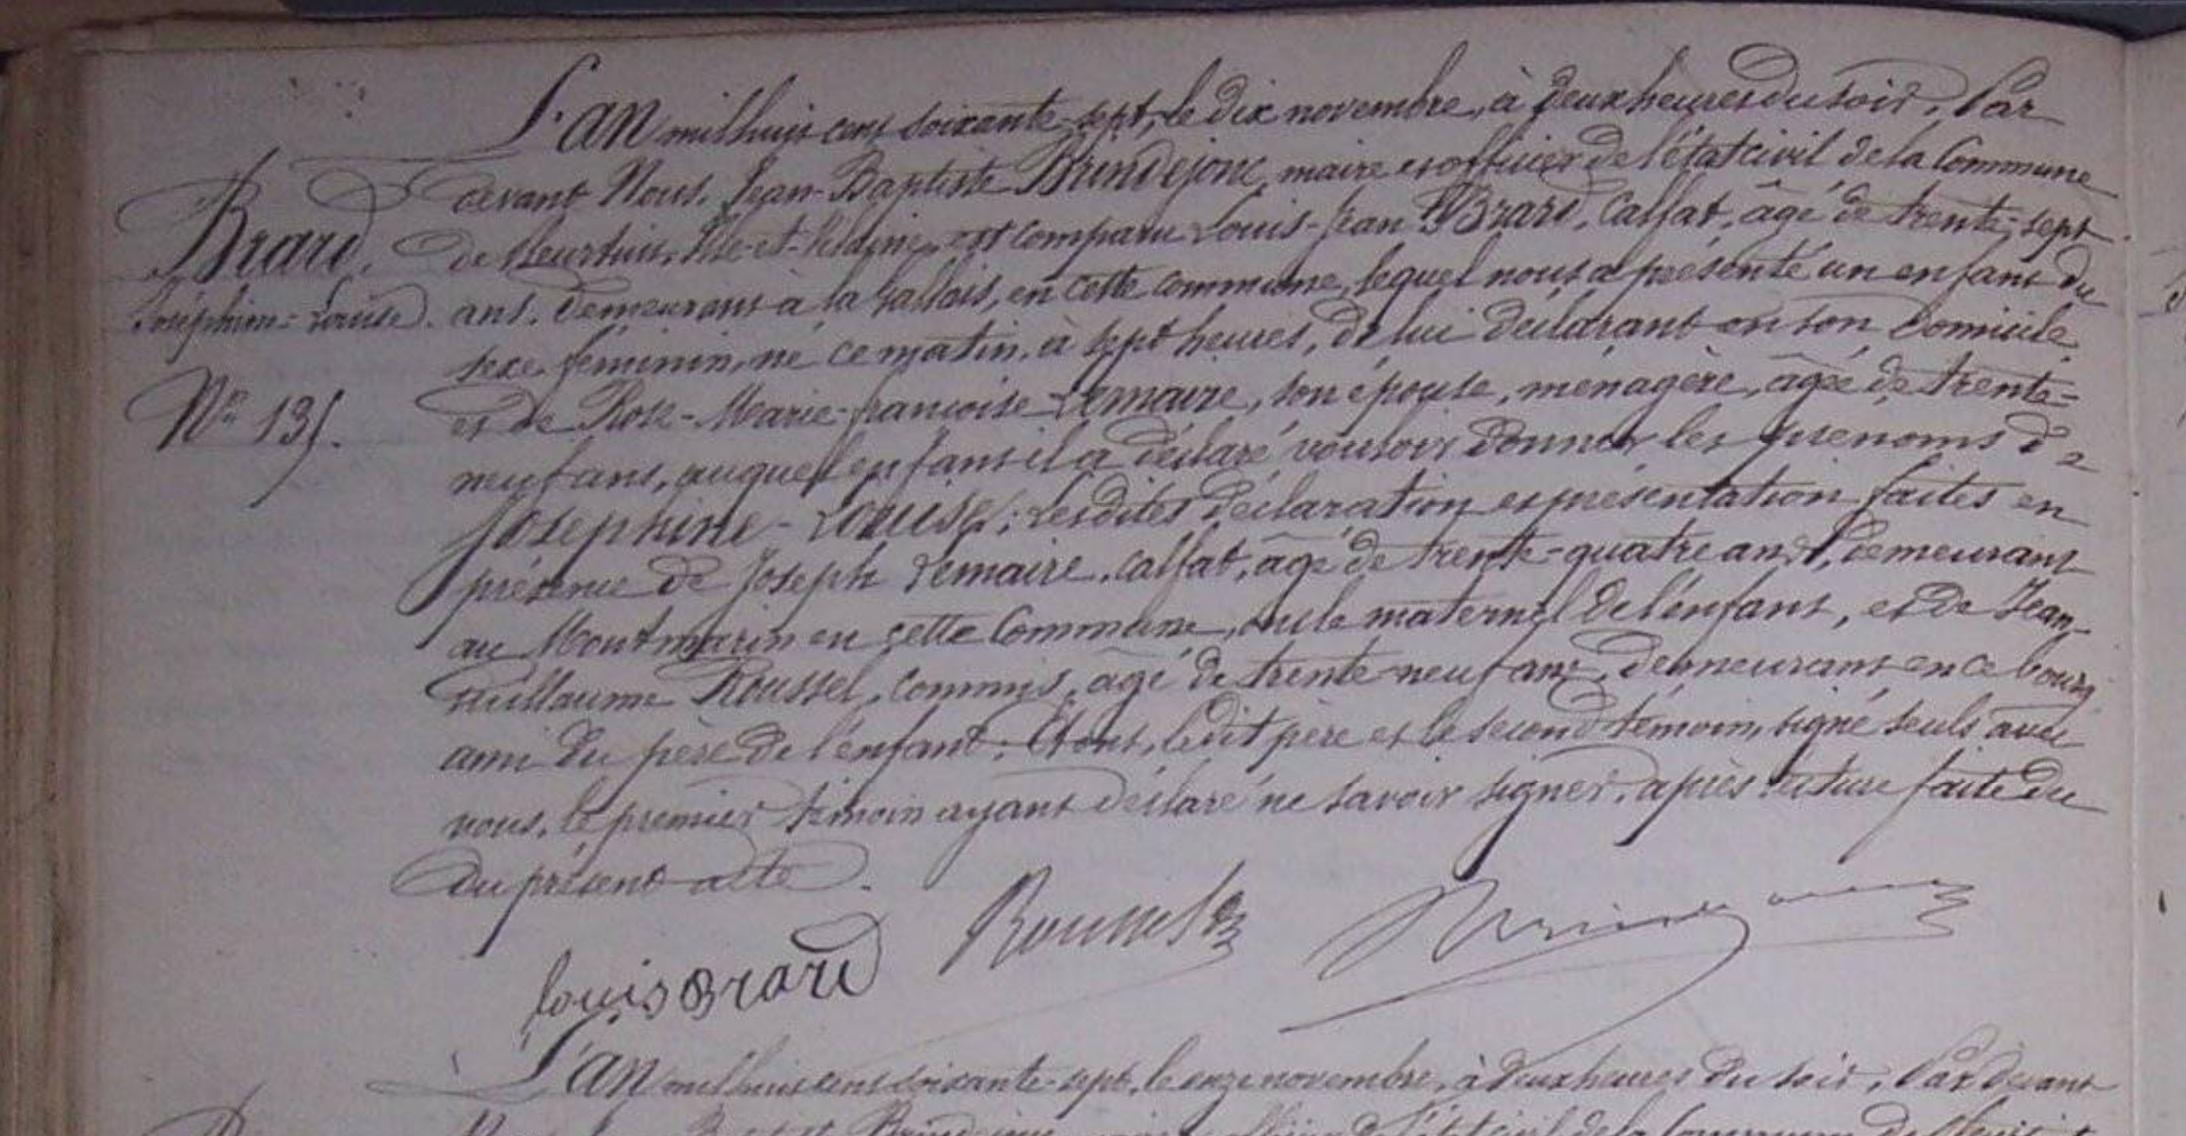 L'an mil huit cent soixante-sept, le dix novembre, à deux heures du soir, Par
devant Nous, Jean-Baptiste Brindejonc, maire et officier de l'état civil de la Commune
Brard,
de Pleurtuit, Ille-et-Vilaine, est comparu Louis-Jean Brard, calfat, âgé de trente-sept
Joséphine-Louise.
ans, demeurant à la Gallais, en cette commune, lequel nous a présenté un enfant du
sexe féminin, né ce matin, à sept heures, de lui déclarant en son domicile,
Nº 135.
et de Rose-Marie-Françoise Lemaire, son épouse, ménagère, âgée de trente-
neuf ans, auquel enfant il a déclaré vouloir donner les prénoms de
Joséphine-Louise; Lesdites déclaration et présentation faites en
présence de Joseph Lemaire, calfat, âgé de trente-quatre ans, demeurant
au Montmarin en cette Commune, oncle maternel de l'enfant, et de Jean-
Guillaume Roussel, commis, âgé de trente-neuf ans, demeurant en ce bourg
ami du père de l'enfant; Et ont, ledit père et le second témoin, signé seuls avec
nous, le premier témoin ayant déclaré ne savoir signer, après lecture faite du
du présent acte.
Roussel
Louis Brard
L'an mil huit cent soixante-sept, le onze novembre, à deux heures du soir, Par devant